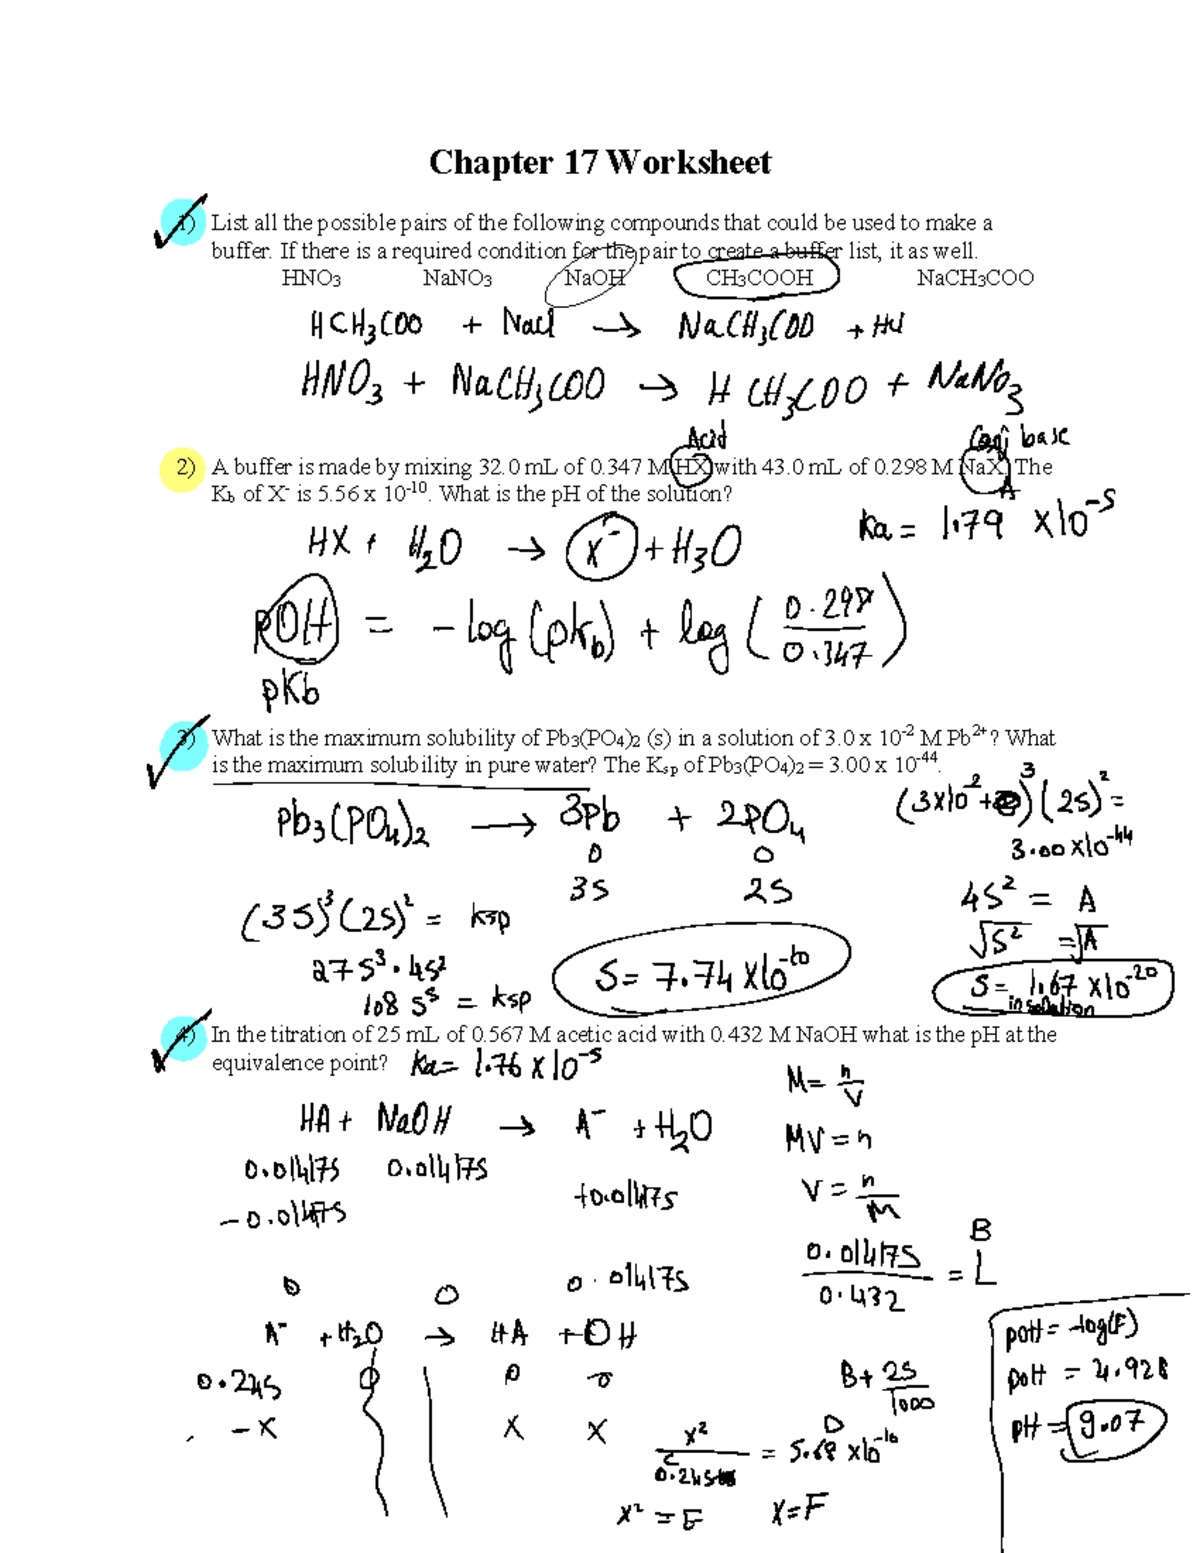 Chapter 17 Worksheet
1) List all the possible pairs of the following compounds that could be used to make a
buffer. If there is a required condition for the pair to create a buffer list, it as well.
HNO3 NaNO3 NaOH CH3COOH NaCH3COO
HCH3COO + NaCl → NaCH3COO + HCl
HNO3 + NaCH3COO → HCH3COO + NaNO3
Acid Conj base
2) A buffer is made by mixing 32.0 mL of 0.347 M HX with 43.0 mL of 0.298 M NaX. The
Kb of X- is 5.56 x 10-10. What is the pH of the solution?
A
Ka = 1.79 x10-5
HX + H2O → X- + H3O
pOH = -log(pKb) + log(0.298/0.347)
pKb
3) What is the maximum solubility of Pb3(PO4)2 (s) in a solution of 3.0 x 10-2 M Pb2+? What
is the maximum solubility in pure water? The Ksp of Pb3(PO4)2 = 3.00 x 10-44.
Pb3(PO4)2 → 3Pb + 2PO4
0 0
3S 2S
(3x10-2 + )3 (2S)2 =
3.00x10-44
(3S)3(2S)2 = ksp
27S3 · 4S2
108 S5 = ksp
S = 7.74 x10-10
4S2 = A
√S2 = √A
S = 1.67 x10-20
in solution
4) In the titration of 25 mL of 0.567 M acetic acid with 0.432 M NaOH what is the pH at the
equivalence point? Ka = 1.76 x 10-5
HA + NaOH → A- + H2O
0.014175 0.014175
-0.014175 +0.014175
0 0 0.014175
M = n/V
MV = n
V = n/M
B
0.014175/0.432 = L
A- + H2O → HA + OH
0.245 0 0 0
-X X X
B + 25/1000
D
x2/0.245 = 5.68 x10-10
C
x2 = E X = F
pOH = -log(F)
pOH = 4.928
pH = 9.07